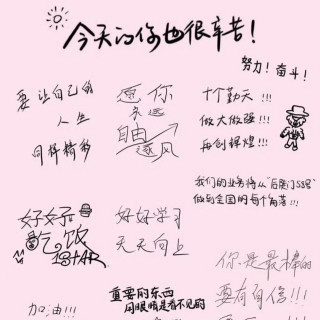 今天的你也很辛苦！
努力！奋斗！
要让自己的
人生
同样精彩
愿你
永远
自由
逐风
十个勤天!!!
做大做强!!!
再创辉煌!!!
我们的业务将从“后陡门58号”
做到全国的每个角落!!!
好好
吃饭
STAR
好好学习
天天向上
你是最棒的
要有自信!!!
加油!!!
重要的东西
用眼睛是看不见的